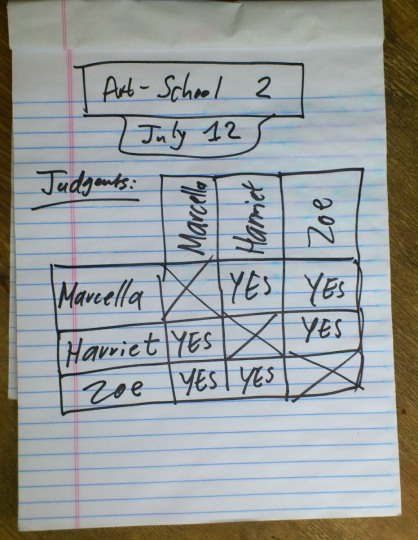 Art-School 2
July 12
Judgents:
Marcella Harriet Zoe
Marcella YES YES
Harriet YES YES
Zoe YES YES